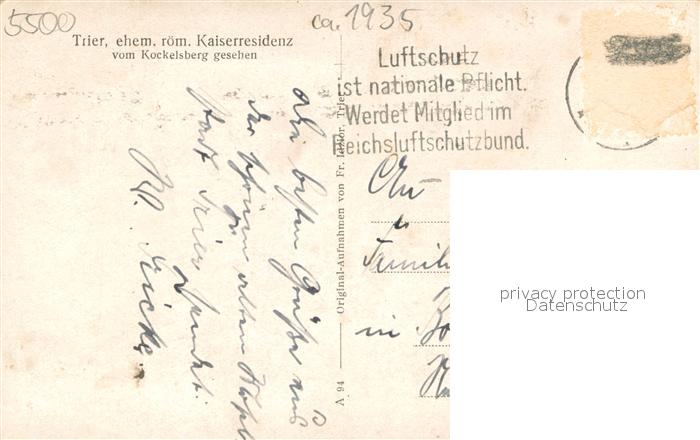 5500
ca. 1935
Trier, ehem. röm. Kaiserresidenz
vom Kockelsberg gesehen
Luftschutz
ist nationale Pflicht.
Werdet Mitglied im
Reichsluftschutzbund.
Die besten Grüße aus
der schönen alten
Stadt Trier sendet
A 94 Original-Aufnahmen von Fr. Trier.
An
in
privacy protection
Datenschutz